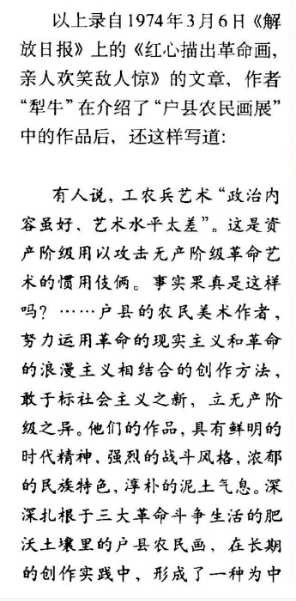 以上录自1974年3月6日《解
放日报》上的《红心描出革命画，
亲人欢笑敌人惊》的文章，作者
“犁牛”在介绍了“户县农民画展”
中的作品后，还这样写道：
有人说，工农兵艺术“政治内
容虽好、艺术水平太差”。这是资
产阶级用以攻击无产阶级革命艺
术的惯用伎俩。事实果真是这样
吗？……户县的农民美术作者，
努力运用革命的现实主义和革命
的浪漫主义相结合的创作方法，
敢于标社会主义之新，立无产阶
级之异。他们的作品，具有鲜明的
时代精神，强烈的战斗风格，浓郁
的民族特色，淳朴的泥土气息。深
深扎根于三大革命斗争生活的肥
沃土壤里的户县农民画，在长期
的创作实践中，形成了一种为中